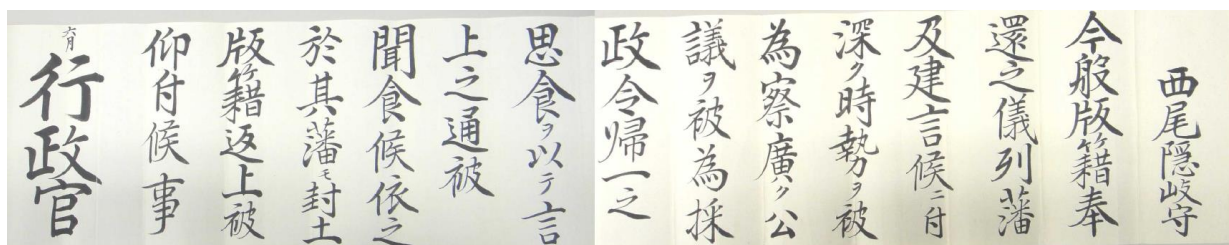 西尾隠岐守
今般版籍奉
還之儀列藩
及建言候ニ付
深ク時勢ヲ被
為察廣ク公
議ヲ被為採
政令帰一之
思食ヲ以テ言
上之通被
聞食候依之
於其藩モ封土
版籍返上被
仰付候事
六月
行政官